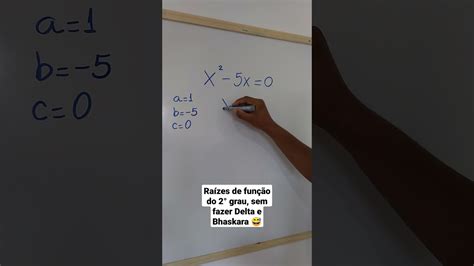 a=1
b=-5
c=0
x² - 5x = 0
a=1
b=-5
c=0
Raízes de função
do 2° grau, sem
fazer Delta e
Bhaskara 😅